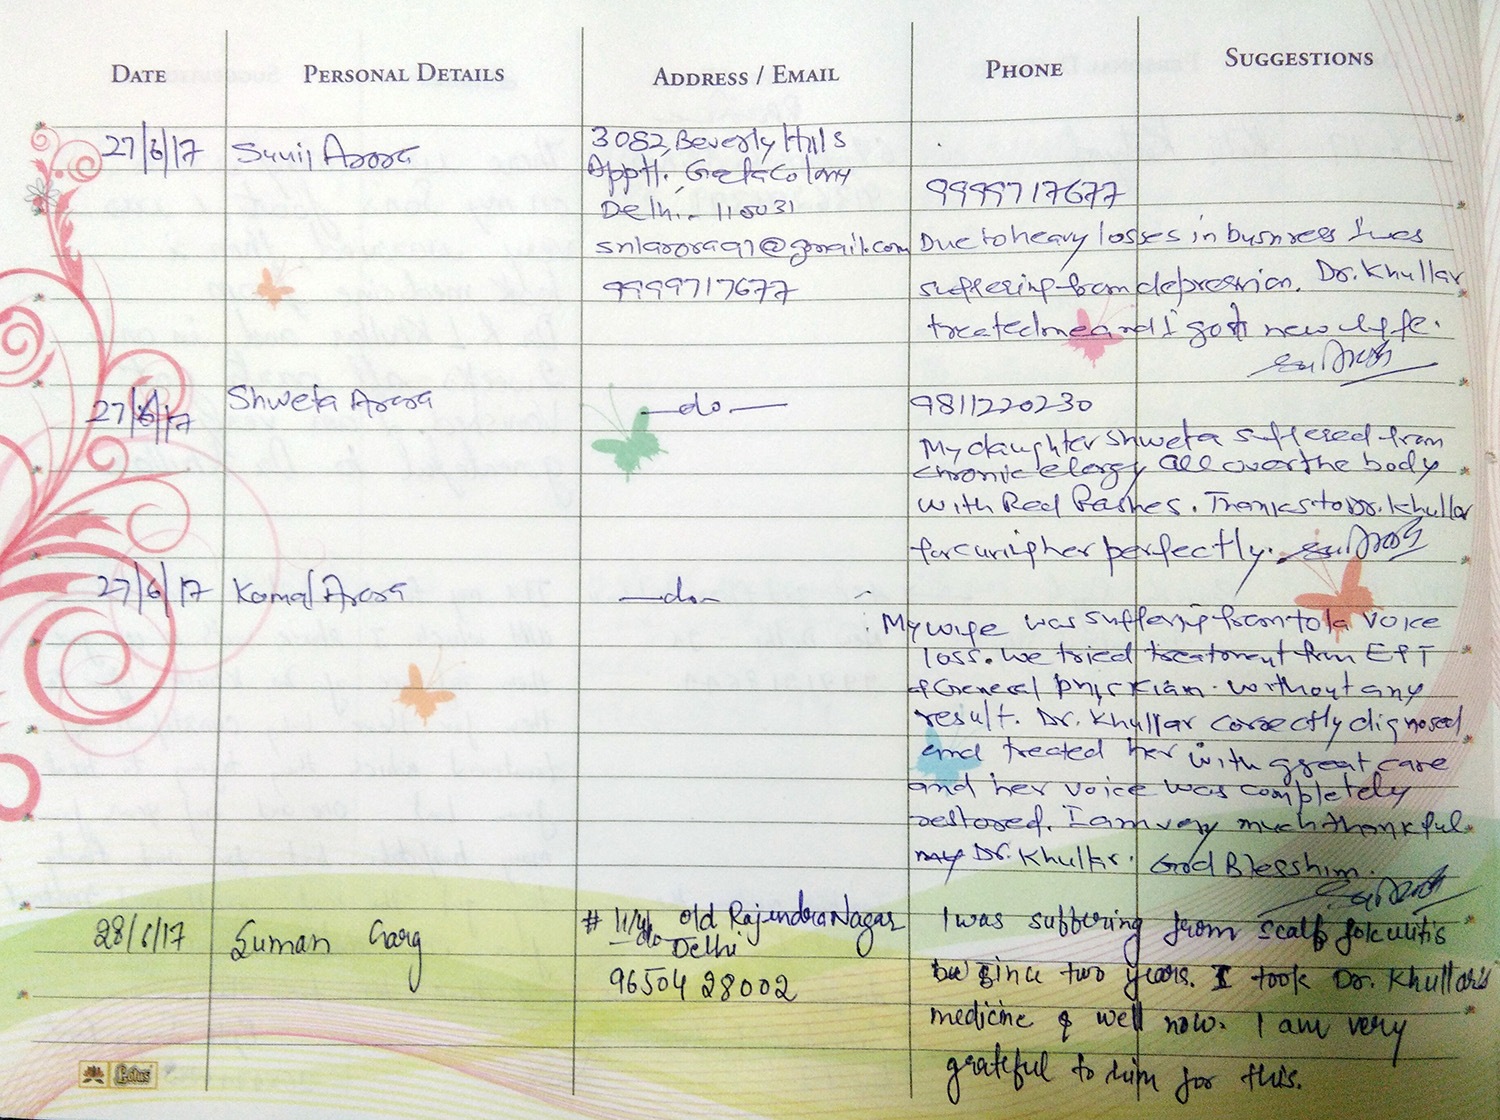 DATE PERSONAL DETAILS ADDRESS / EMAIL PHONE SUGGESTIONS
27/6/17 Sunil Arora
3082, Beverly Hills
Appts., Geeta Colony
Delhi - 110031
snlarora91@gmail.com
9999717677
9999717677
Due to heavy losses in business I was
suffering from depression. Dr. Khullar
treated me and I got new life.
27/6/17 Shweta Arora —do— 9811220230
My daughter Shweta suffered from
chronic elergy all over the body
with Red Rashes. Thanks to Dr. Khullar
for curing her perfectly.
27/6/17 Komal Arora —do—
My wife was suffering from total voice
loss. We tried treatment from EPT
& General physician without any
result. Dr. Khullar correctly dignosed
and treated her with great care
and her voice was completely
restored. I am very much thankful
Dr. Khullar. God Bless him.
28/6/17 Suman Garg
# Old Rajendra Nagar
Delhi
9650428002
I was suffering from scalp folculitis
since two years. I took Dr. Khullar's
medicine & well now. I am very
grateful to him for this.
Lotus